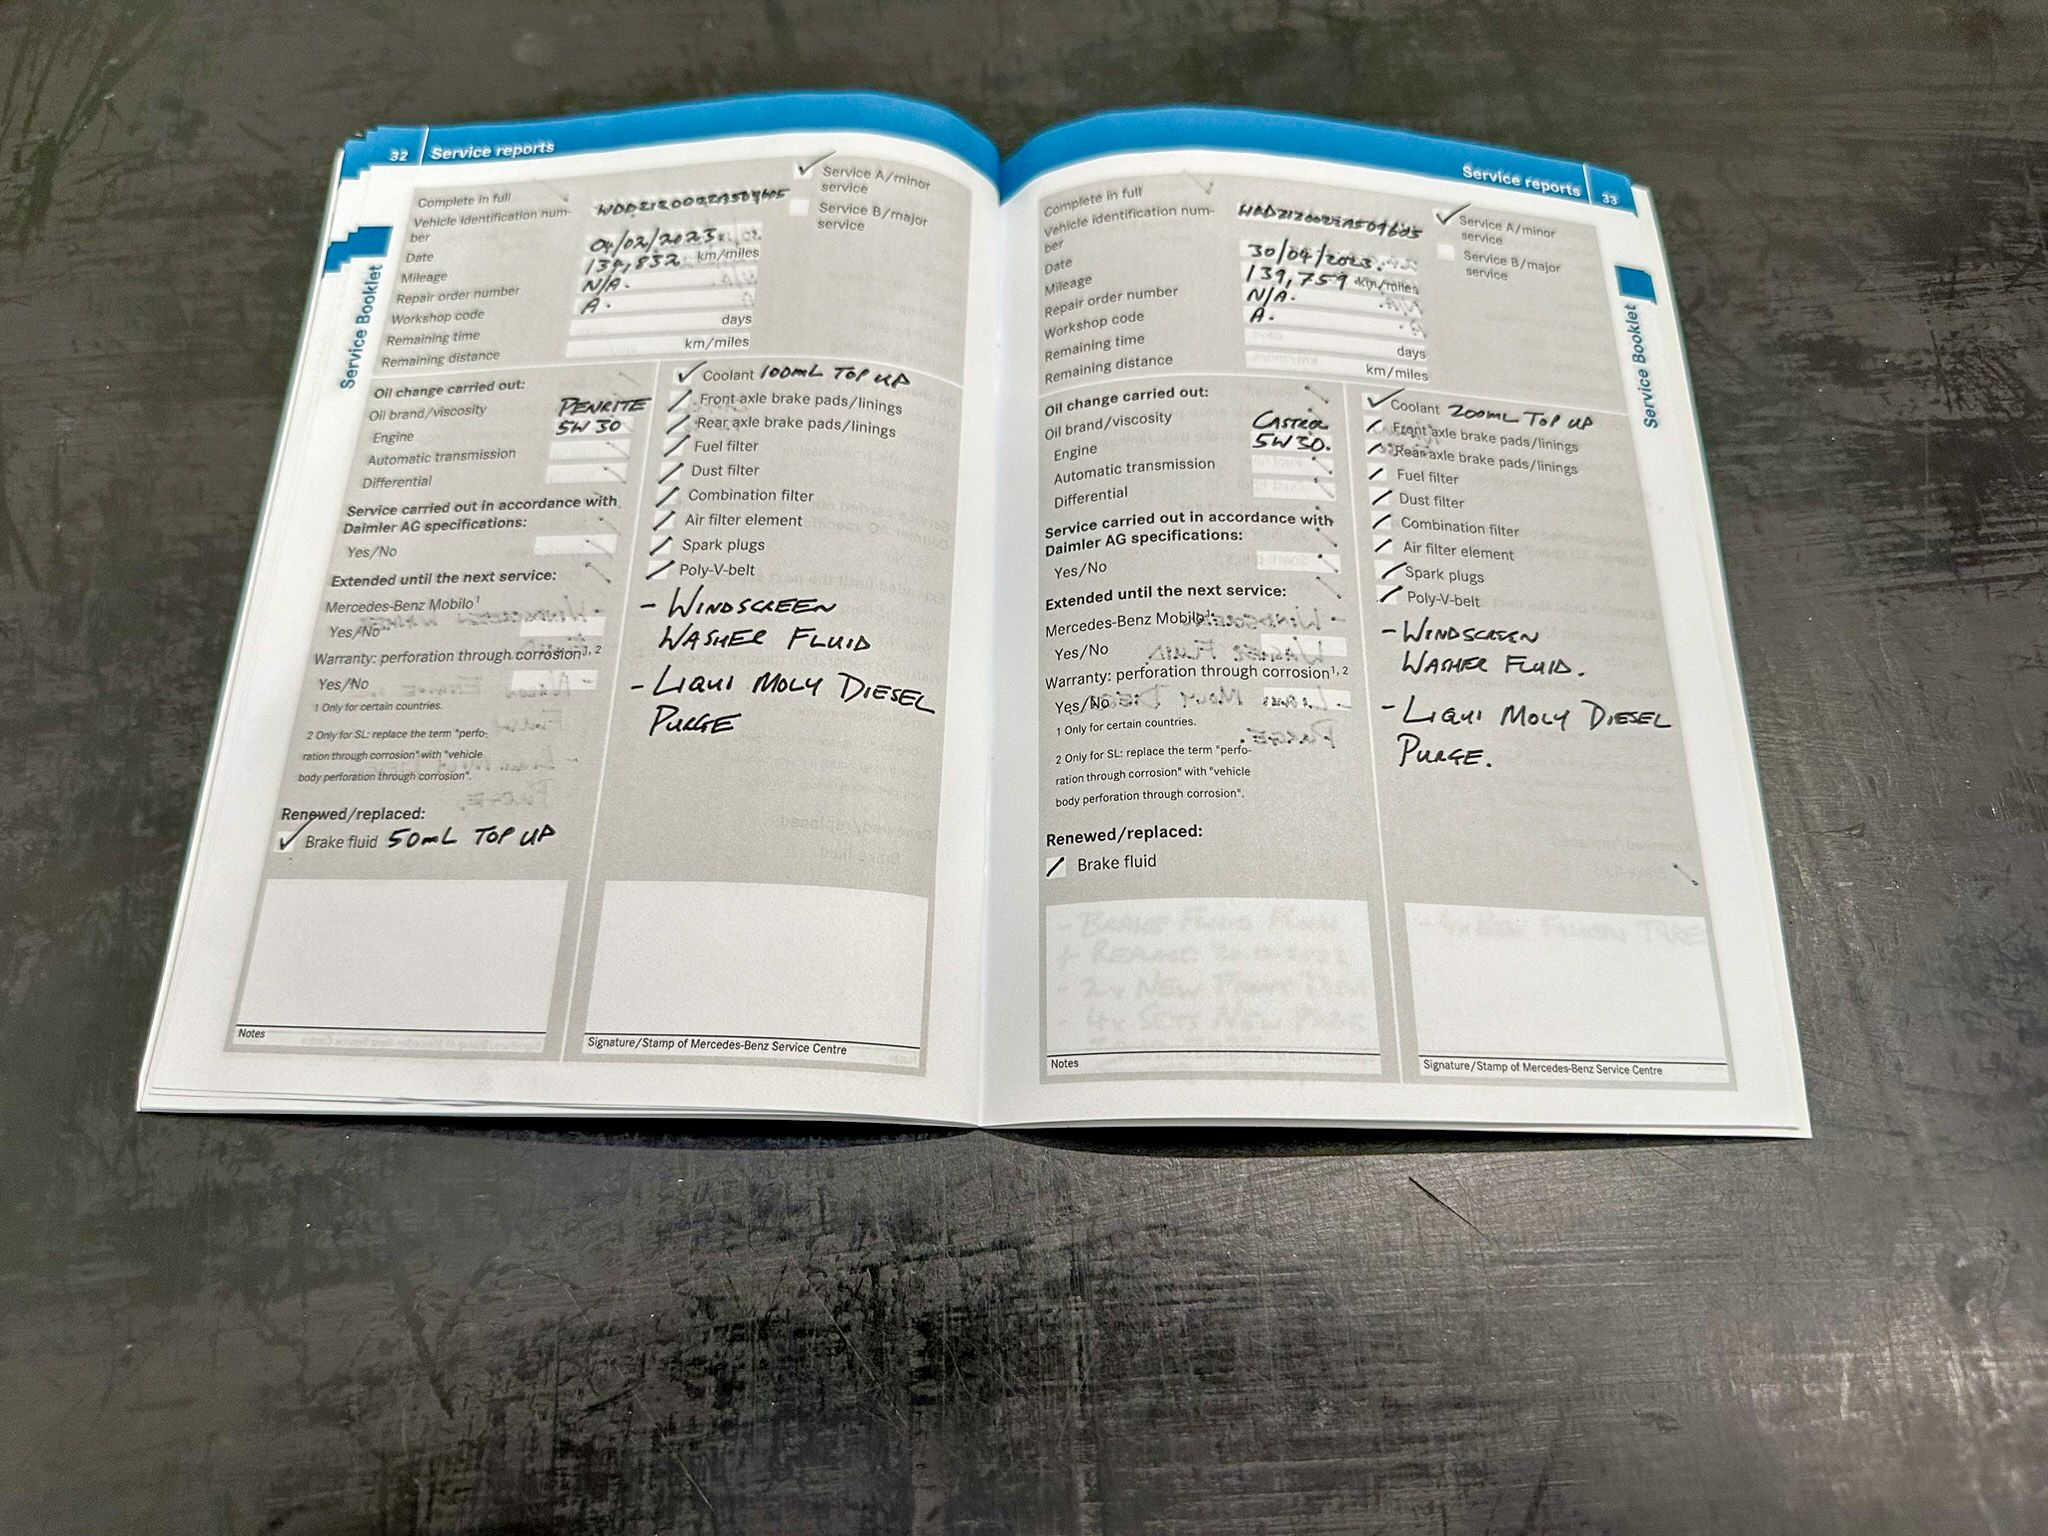 32 Service reports
Complete in full
Vehicle identification num-
ber
Date 04/02/2023
Mileage 134,832 km/miles
Repair order number N/A.
Workshop code A.
Remaining time days
Remaining distance km/miles
Service A/minor
service
Service B/major
service
Service Booklet
Oil change carried out:
Oil brand/viscosity PENRITE
Engine 5W30
Automatic transmission
Differential
Service carried out in accordance with
Daimler AG specifications:
Yes/No
Extended until the next service:
Mercedes-Benz Mobilo¹
Yes/No
Warranty: perforation through corrosion¹, ²
Yes/No
1 Only for certain countries.
2 Only for SL: replace the term "perfo-
ration through corrosion" with "vehicle
body perforation through corrosion".
Renewed/replaced:
Brake fluid 50mL TOP UP
Coolant 100mL TOP UP
Front axle brake pads/linings
Rear axle brake pads/linings
Fuel filter
Dust filter
Combination filter
Air filter element
Spark plugs
Poly-V-belt
- WINDSCREEN
WASHER FLUID
- LIQUI MOLY DIESEL
PURGE
Notes
Signature/Stamp of Mercedes-Benz Service Centre
Service reports 33
Complete in full
Vehicle identification num-
ber
Date 30/04/2023.
Mileage 139,759 km/miles
Repair order number N/A.
Workshop code A.
Remaining time days
Remaining distance km/miles
Service A/minor
service
Service B/major
service
Service Booklet
Oil change carried out:
Oil brand/viscosity CASTROL
Engine 5W30.
Automatic transmission
Differential
Service carried out in accordance with
Daimler AG specifications:
Yes/No
Extended until the next service:
Mercedes-Benz Mobilo¹
Yes/No
Warranty: perforation through corrosion¹, ²
Yes/No
1 Only for certain countries.
2 Only for SL: replace the term "perfo-
ration through corrosion" with "vehicle
body perforation through corrosion".
Renewed/replaced:
Brake fluid
Coolant 200mL TOP UP
Front axle brake pads/linings
Rear axle brake pads/linings
Fuel filter
Dust filter
Combination filter
Air filter element
Spark plugs
Poly-V-belt
- WINDSCREEN
WASHER FLUID.
- LIQUI MOLY DIESEL
PURGE.
Notes
Signature/Stamp of Mercedes-Benz Service Centre